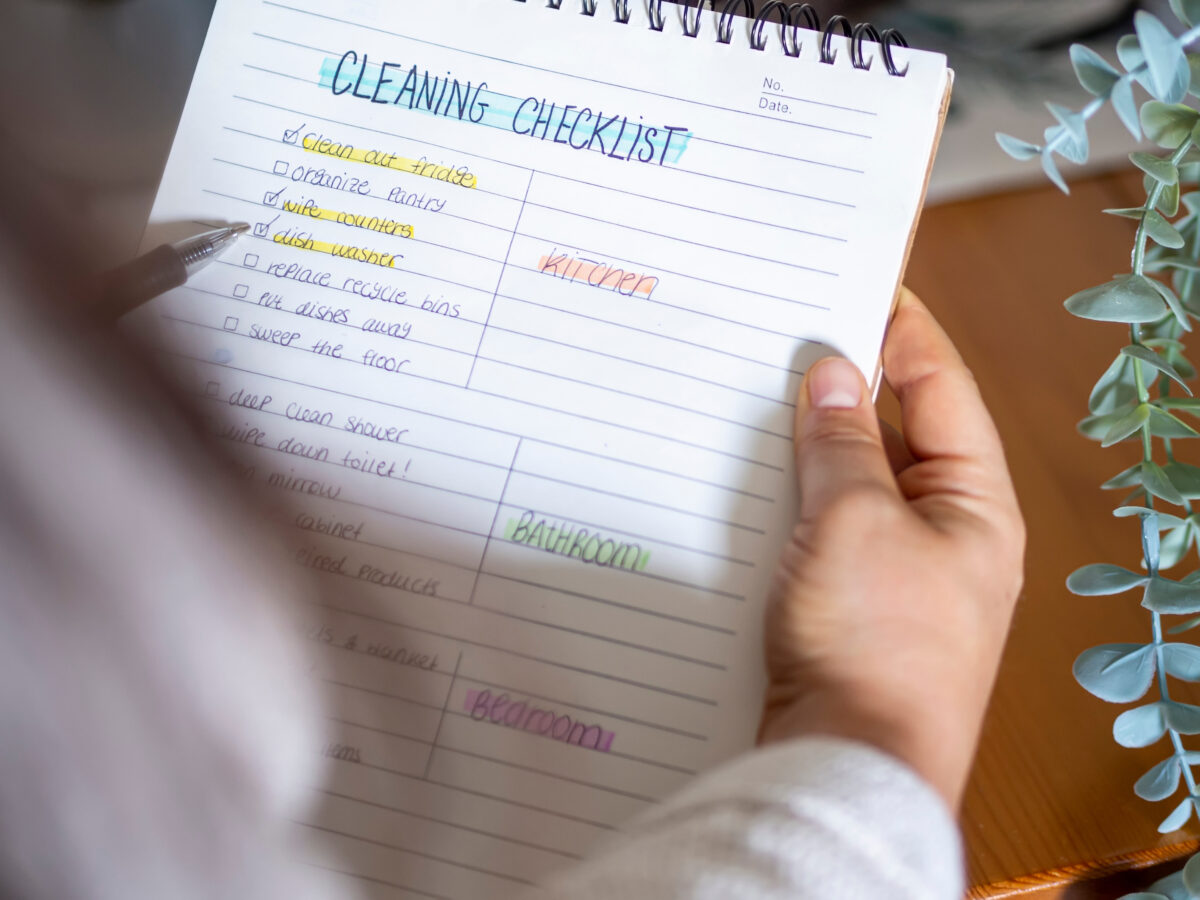 No.
Date.
CLEANING CHECKLIST
clean out fridge
organize pantry
wipe counters
dish washer
replace recycle bins
put dishes away
sweep the floor
Kitchen
deep clean shower
wipe down toilet!
mirrow
cabinet
products
BATHROOM
& blanket
Bedroom
items